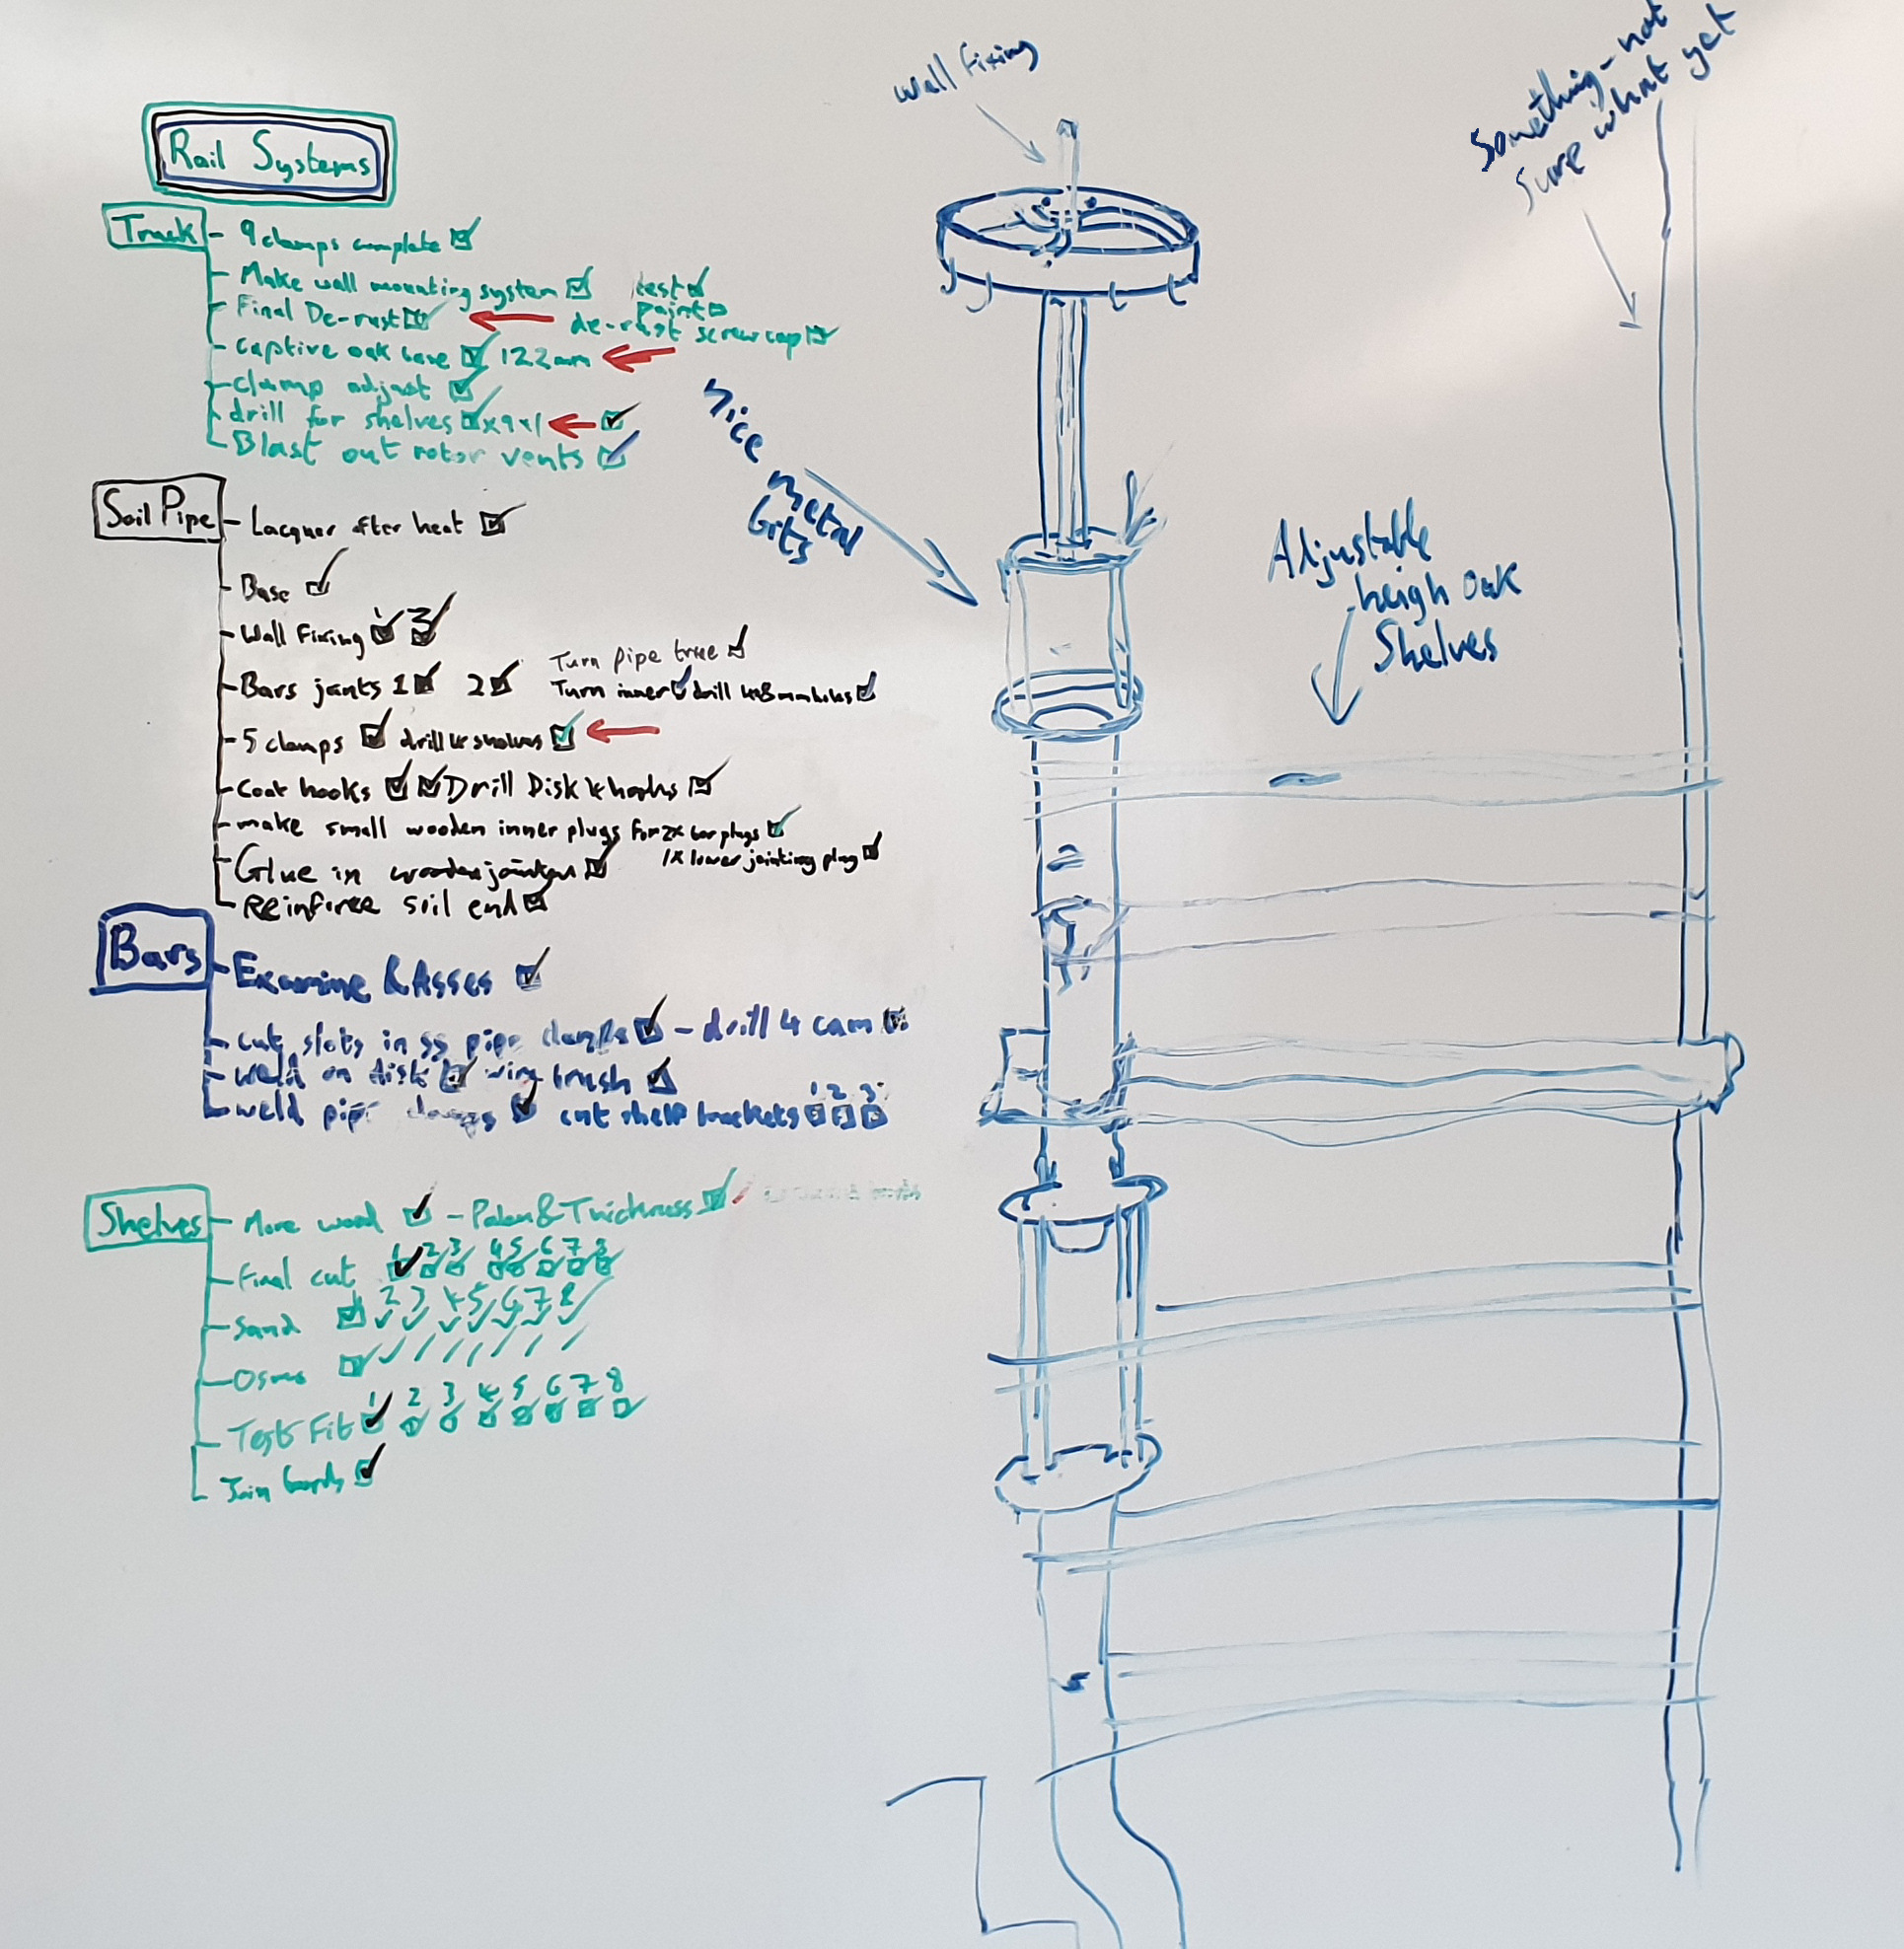 Rail Systems
Track
- 9 clamps complete ☑
- Make wall mounting system ☑ test ☑
paint
- Final De-rust ☑ ← de-rust screw cap ☑
- captive oak base ☑ 122mm ←
- clamp adjust ☑
- drill for shelves ☑ x9x1 ← ☑
- Blast out rotor vents ☑
Soil Pipe
- Lacquer after heat ☑
- Base ☑
- Wall Fixing 1 ☑ 3 ☑
Turn pipe true ☑
- Bars joints 1 ☑ 2 ☑ Turn inner ☑ drill 4x8mm holes ☑
- 5 clamps ☑ drill 4 shelves ☑ ←
- Coat hooks ☑ ☑ Drill Disk 4 hooks ☑
- make small wooden inner plugs for 2x bar plugs ☑
1x lower jointing plug ☑
- Glue in wooden ☑
- Reinforce soil end ☑
Bars
- Examine & Asses ☑
- cut slots in ss pipe clamps ☑ - drill 4 cam ☑
- weld on disk ☑ wire brush ☑
- weld pipe clamps ☑ cut shelf brackets 1 2 3
Shelves
- More wood ☑ - & Thickness ☑
- Final cut 1 2 3 4 5 6 7 8
- Sand 2 3 4 5 6 7 8
- Osmo ☑
- Test Fit 1 2 3 4 5 6 7 8
- Join boards ☑
Wall Fixing
Something - not
Sure what yet
Nice
Metal
bits
Adjustable
heigh Oak
Shelves